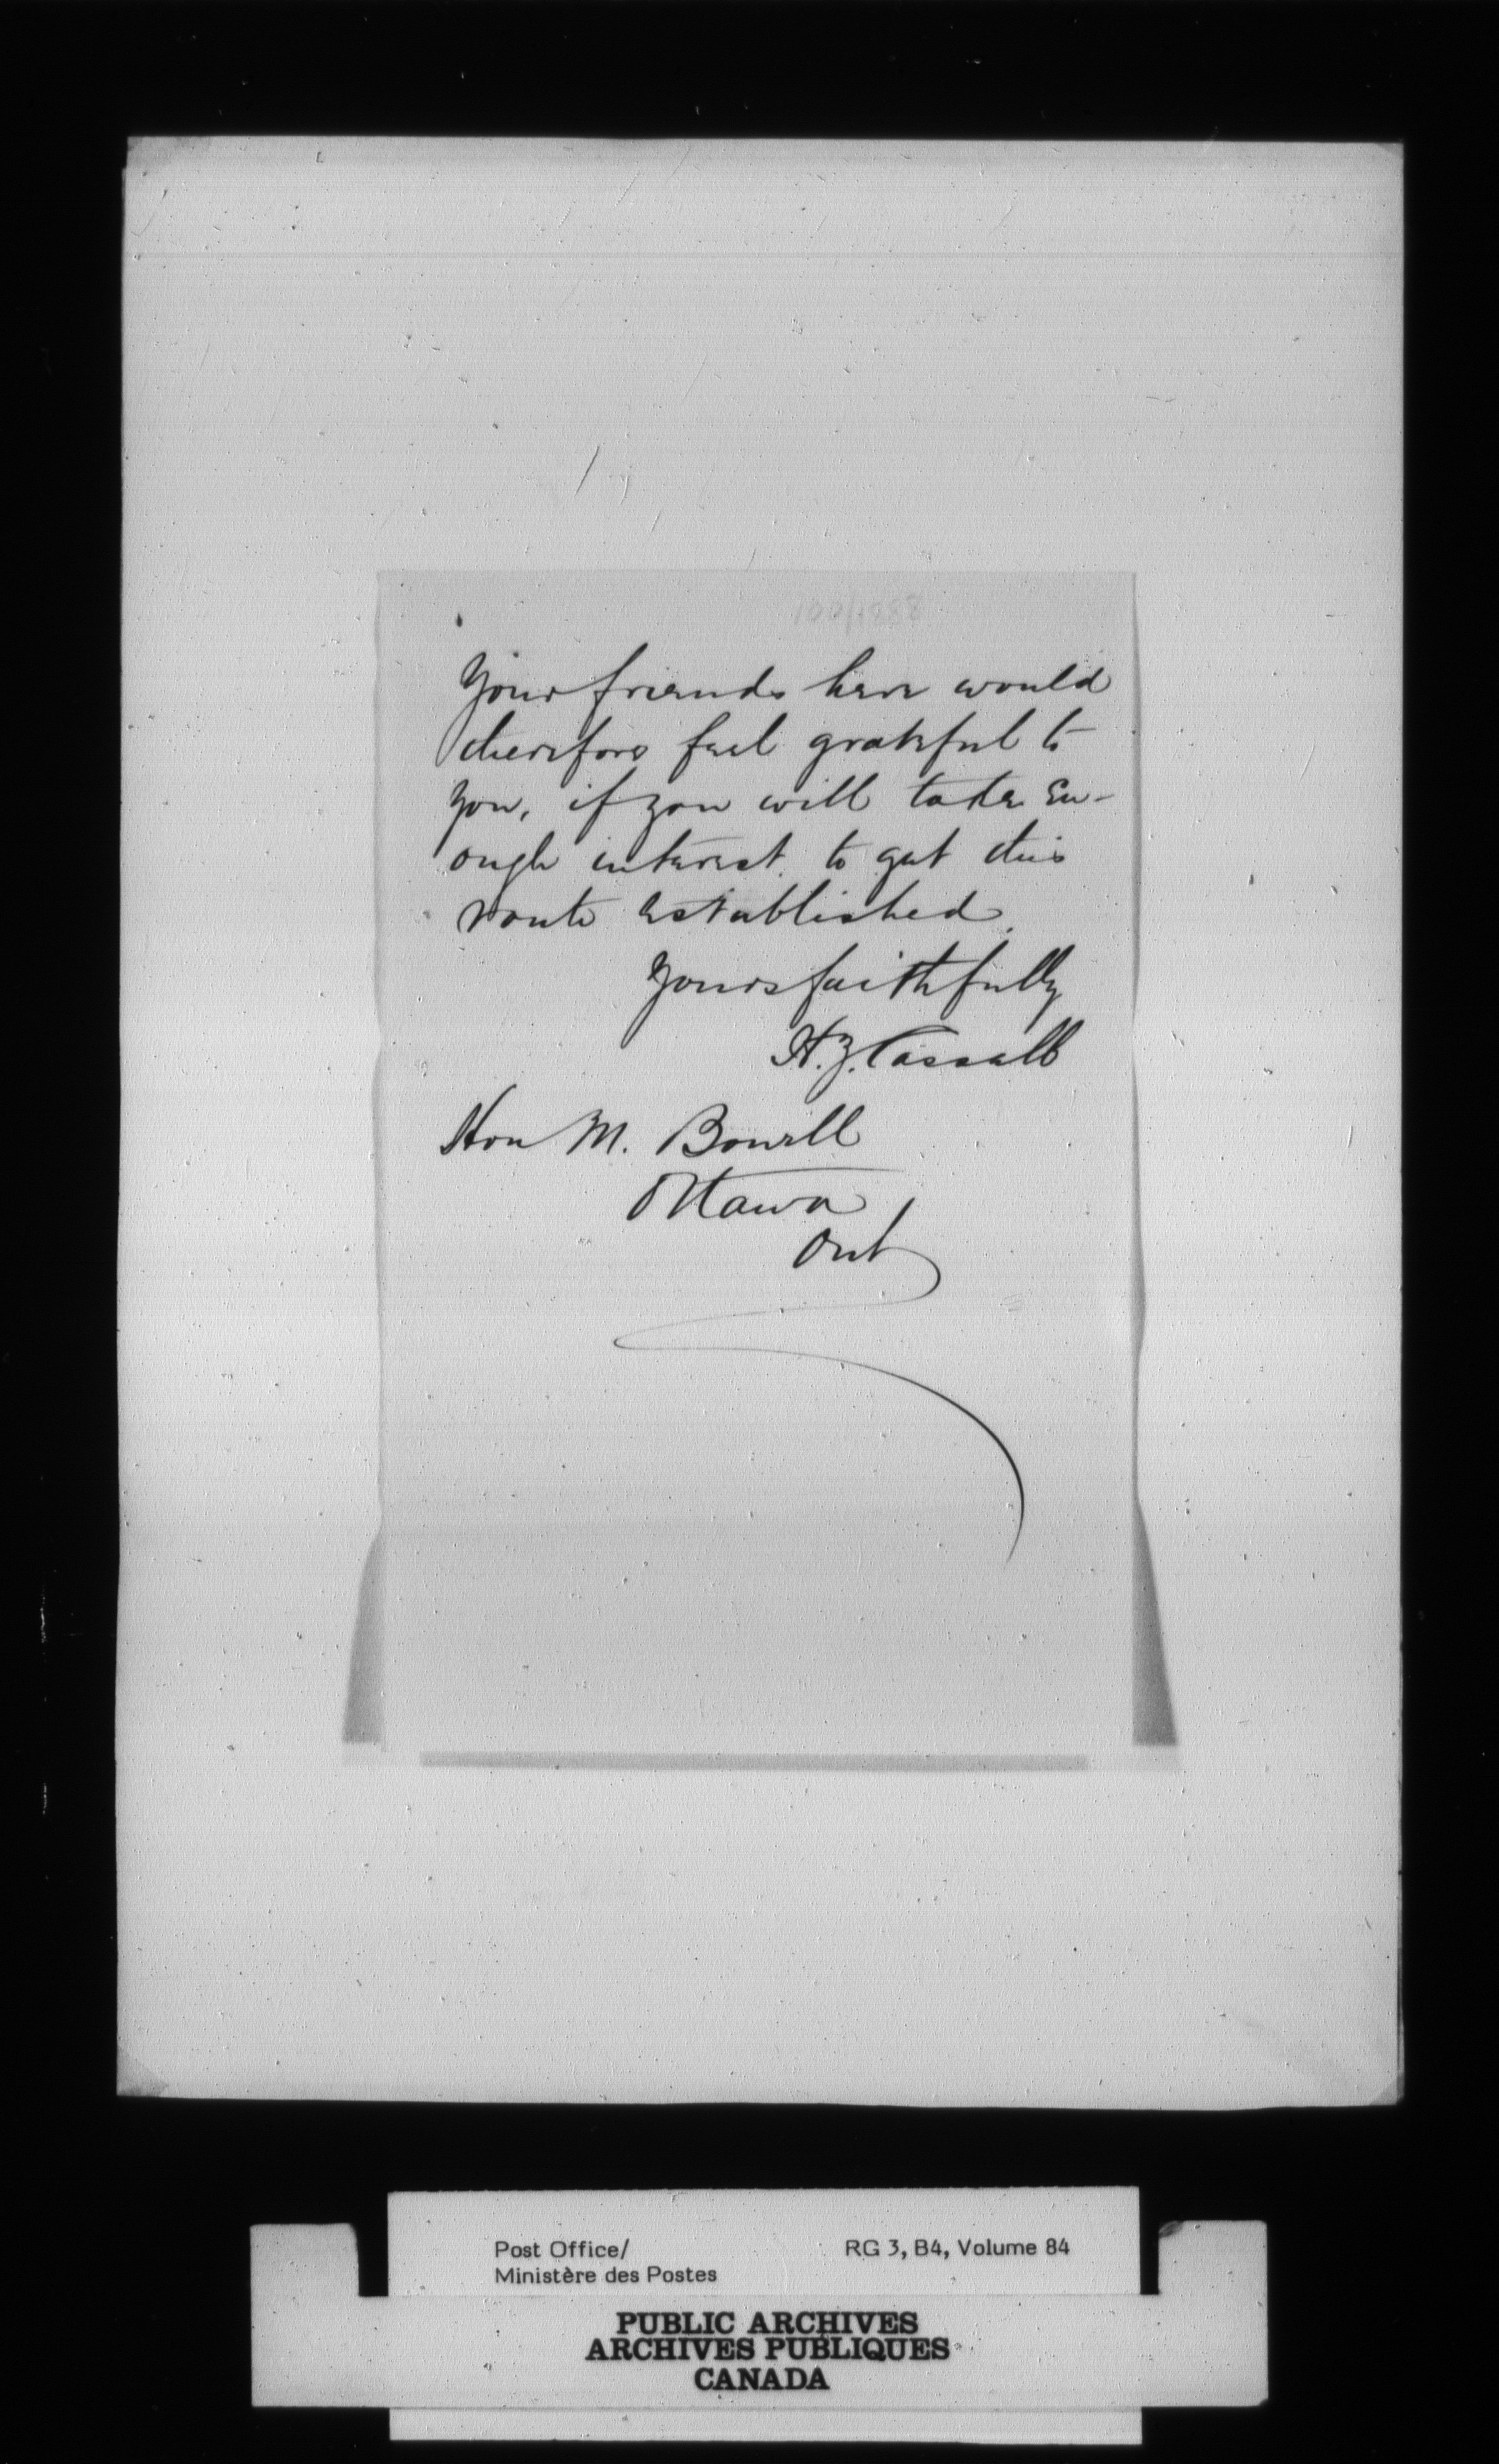 Your friends here would
therefore feel grateful to
you, if you will take en-
ough interest to get this
route established.
Yours faithfully
H. Z. Cassall
Hon M. Bowell
Ottawa
Ont
Post Office/
Ministère des Postes
RG 3, B4, Volume 84
PUBLIC ARCHIVES
ARCHIVES PUBLIQUES
CANADA